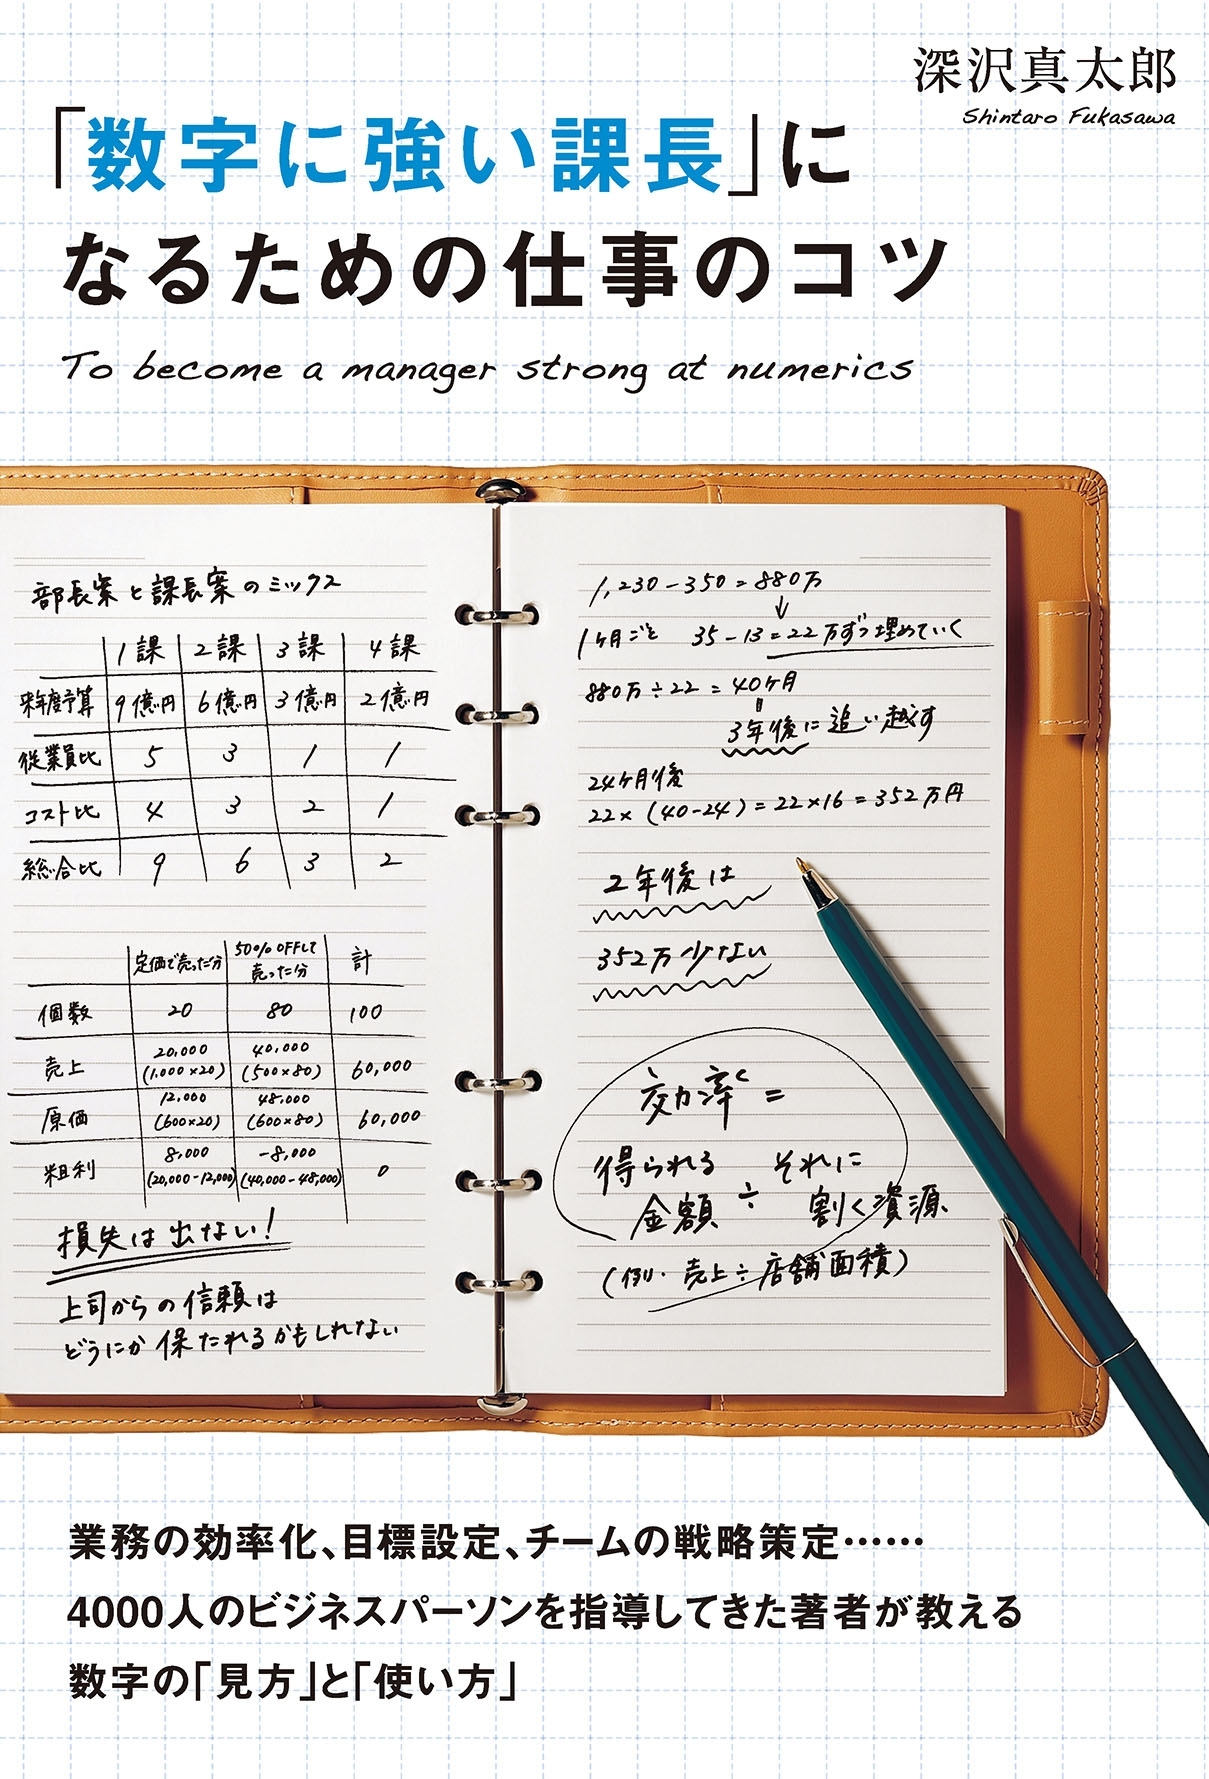 深沢真太郎
Shintaro Fukasawa
「数字に強い課長」に
なるための仕事のコツ
To become a manager strong at numerics
部長案と課長案のミックス
1課 2課 3課 4課
来年度予算 9億円 6億円 3億円 2億円
従業員比 5 3 1 1
コスト比 4 3 2 1
総合比 9 6 3 2
定価で売った分 50%OFFして売った分 計
個数 20 80 100
売上 20,000 (1,000×20) 40,000 (500×80) 60,000
原価 12,000 (600×20) 48,000 (600×80) 60,000
粗利 8,000 (20,000-12,000) -8,000 (40,000-48,000) 0
損失は出ない!
上司からの信頼は
どうにか保たれるかもしれない
1,230-350=880万
↓
1ヶ月ごと 35-13=22万ずつ埋めていく
880万÷22=40ヶ月
〃
3年後に追い越す
24ヶ月後
22×(40-24)=22×16=352万円
2年後は
352万少ない
効率=
得られる金額÷それに割く資源
(例.売上÷店舗面積)
業務の効率化、目標設定、チームの戦略策定……
4000人のビジネスパーソンを指導してきた著者が教える
数字の「見方」と「使い方」